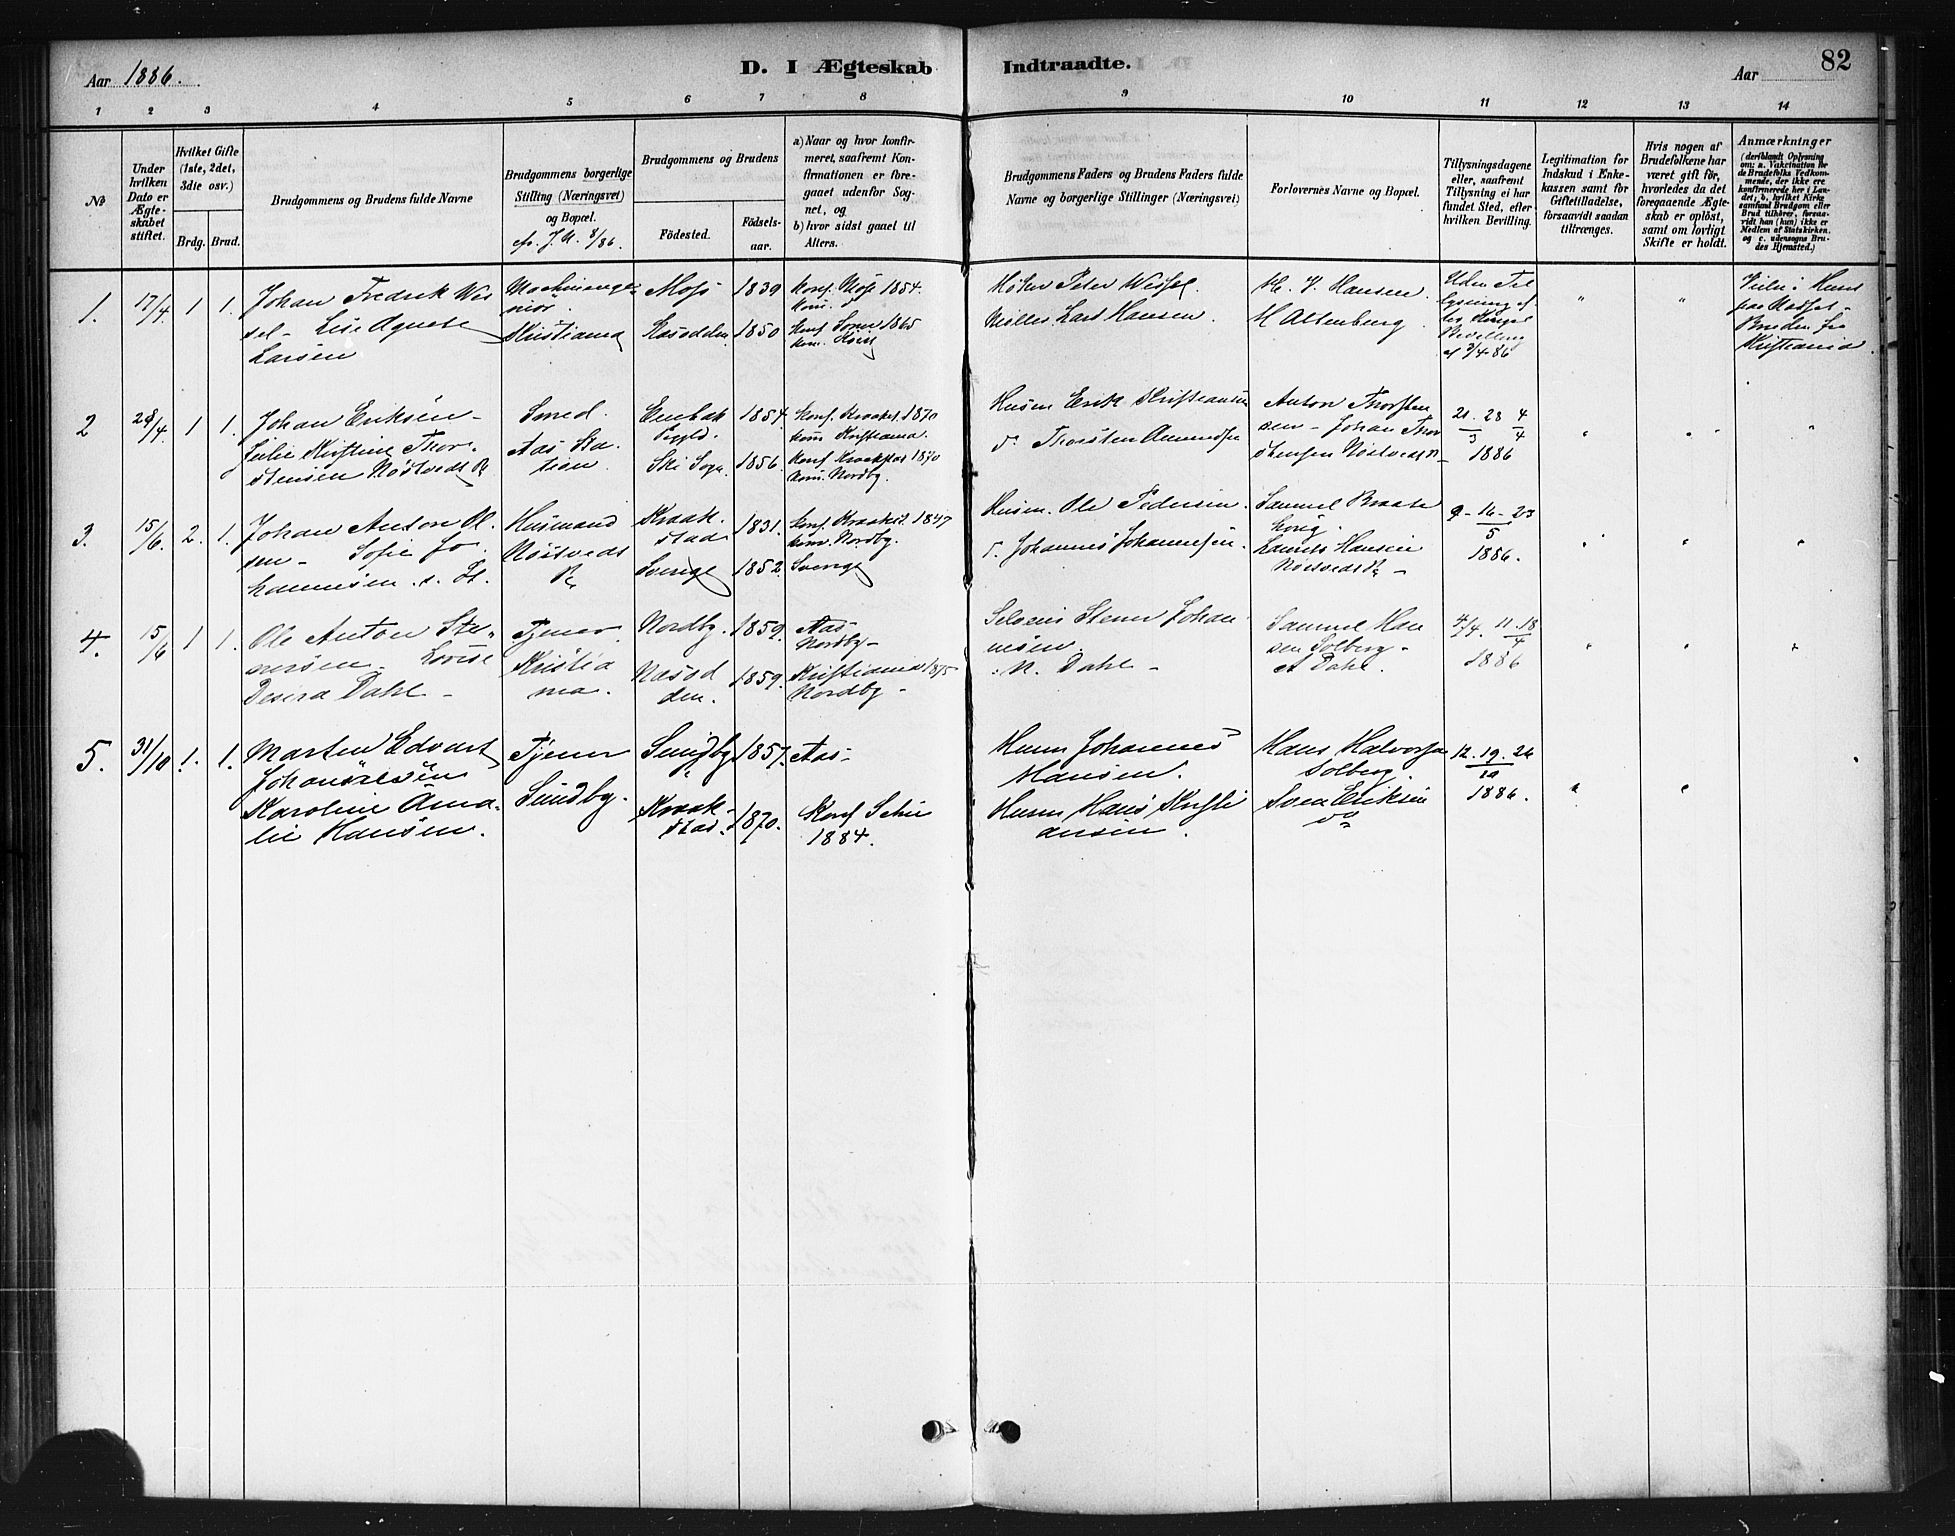 Aar 1886.
D. I Ægteskab
Indtraadte.
Aar
82
1 2 3 4 5 6 7 8 9 10 11 12 13 14
№
Under
hvilken
Dato er
Ægte-
skabet
stiftet.
Hvilket Gifte
(1ste, 2det,
3die osv.)
Brdg. Brud.
Brudgommens og Brudens fulde Navne
Brudgommens borgerlige
Stilling (Næringsvei)
og Bopæl.
Brudgommens og Brudens
Födested.
Födsels-
aar.
a) Naar og hvor konfir-
meret, saafremt Kon-
firmationen er fore-
gaaet udenfor Sog-
net, og
b) hvor sidst gaaet til
Alters.
Brudgommens Faders og Brudens Faders fulde
Navne og borgerlige Stillinger (Næringsvei)
Forlovernes Navne og Bopæl.
Tillysningsdagene
eller, saafremt
Tillysning ei har
fundet Sted, efter
hvilken Bevilling.
Legitimation for
Indskud i Enke-
kassen samt for
Giftetilladelse,
forsaavidt saadan
tiltrænges.
Hvis nogen af
Brudefolkene har
været gift før,
hvorledes da det
foregaaende Ægte-
skab er oplöst,
samt om lovligt
Skifte er holdt.
Anmærkninger
(deriblandt Oplysning
om: a. Vakcination for
de Brudefolks Vedkom-
mende, der ikke ere
konfirmerede her i Lan-
det, b. hvilket Kirke
samfund Brudgom eller
Brud tilhörer, forsaa-
vidt han (hun) ikke er
Medlem af Statskirken.
og c. udensogns Bru-
des Hjemsted.)
1. 17/4 1 1.
Johan Fredrik Wes
sel - Lise Agnete
Larsen
Kristiania
Moss 1839
Næsodden 1850
Konf. Moss 1854.
Peter Wessel
Lars Hansen.
Hansen
M Altenberg
Uden Til
lysning ef
ter Kongel
Bevilling
af 3/4 86
Bruden fra
Kristiania
2 28/4 1 1.
Johan Eriksen -
Julie Kristine Thor-
stensen Nöstvedt
Smed.
Aas Sta
tion
Enebak 1854.
Ski Sogn 1856.
Konf. Kraakst. 1870
kom. Kristiania.
Konf Kraakstad 1870
kom. Nordby.
Husm Erik Kristiansen
do Thorsten Amundsen
Anton Thorsten
sen - Johan Thor
stensen Nöstvedt
21. 28 4
3 4
1886
3. 15/6. 2. 1.
Johan Anton Ol.
sen - Sofie Jo-
hannesen
Husmand
Nöstvedt
Kraak-
stad 1831.
Sverige 1852.
Konf. Kraakst. 1847
kom. Nordby.
Sverige
Husm. Ole Pedersen
Johannes Johannesen.
Samuel Braate
Laurits Hansen
Nöstvedt
9 - 16 - 23
5
1886.
4. 15/6 1 1.
Ole Anton Ste-
nersen - Lovise
Desera Dahl -
Tjener
Kristia
nia.
Nordby. 1859.
Næsod
den. 1859.
Aas
Nordby -
Kristiania 1875
Nordby -
Selveier Stener Johan
nesen
N. Dahl -
Samuel Han
sen Solberg -
A Dahl.
4/4. 11 18
4
1886
5. 31/10 1. 1.
Marten Edvart
Johannesen
Karoline Ama-
lie Hansen.
Tjener
Sundby.
Sundby 1857.
Kraak-
stad. 1870.
Aas -
Konf Schie
1884.
Husm Johannes
Hansen.
Husm Hans Kristi
ansen.
Hans Halvorsen
Solberg.
Sven Eriksen
do
12. 19. 26
10
1886.